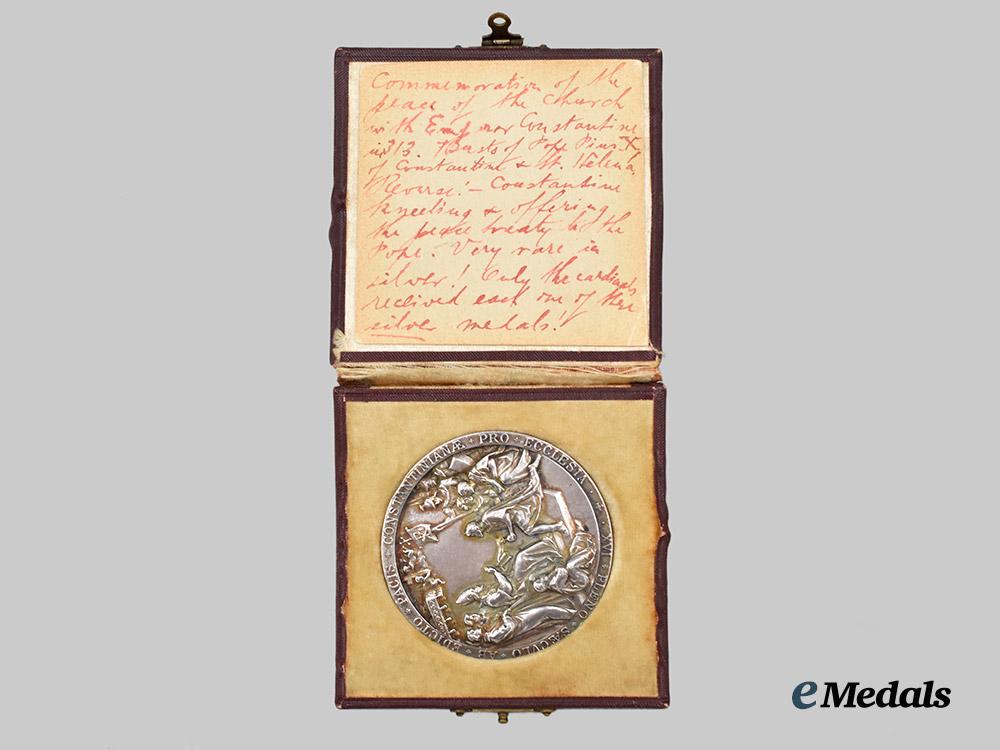 Commemoration of the
peace of the church
with Emperor Constantine
in 313. Busts of Pope Pius X,
of Constantine & St. Helena,
Reverse:- Constantine
kneeling & offering
the peace treaty to the
Pope. Very rare in
silver! Only the cardinals
received each one of these
silver medals!
XVI · PLENO · SÆCVLO · AB · EDICTO · PACIS · CONSTANTINIANÆ · PRO · ECCLESIA
eMedals